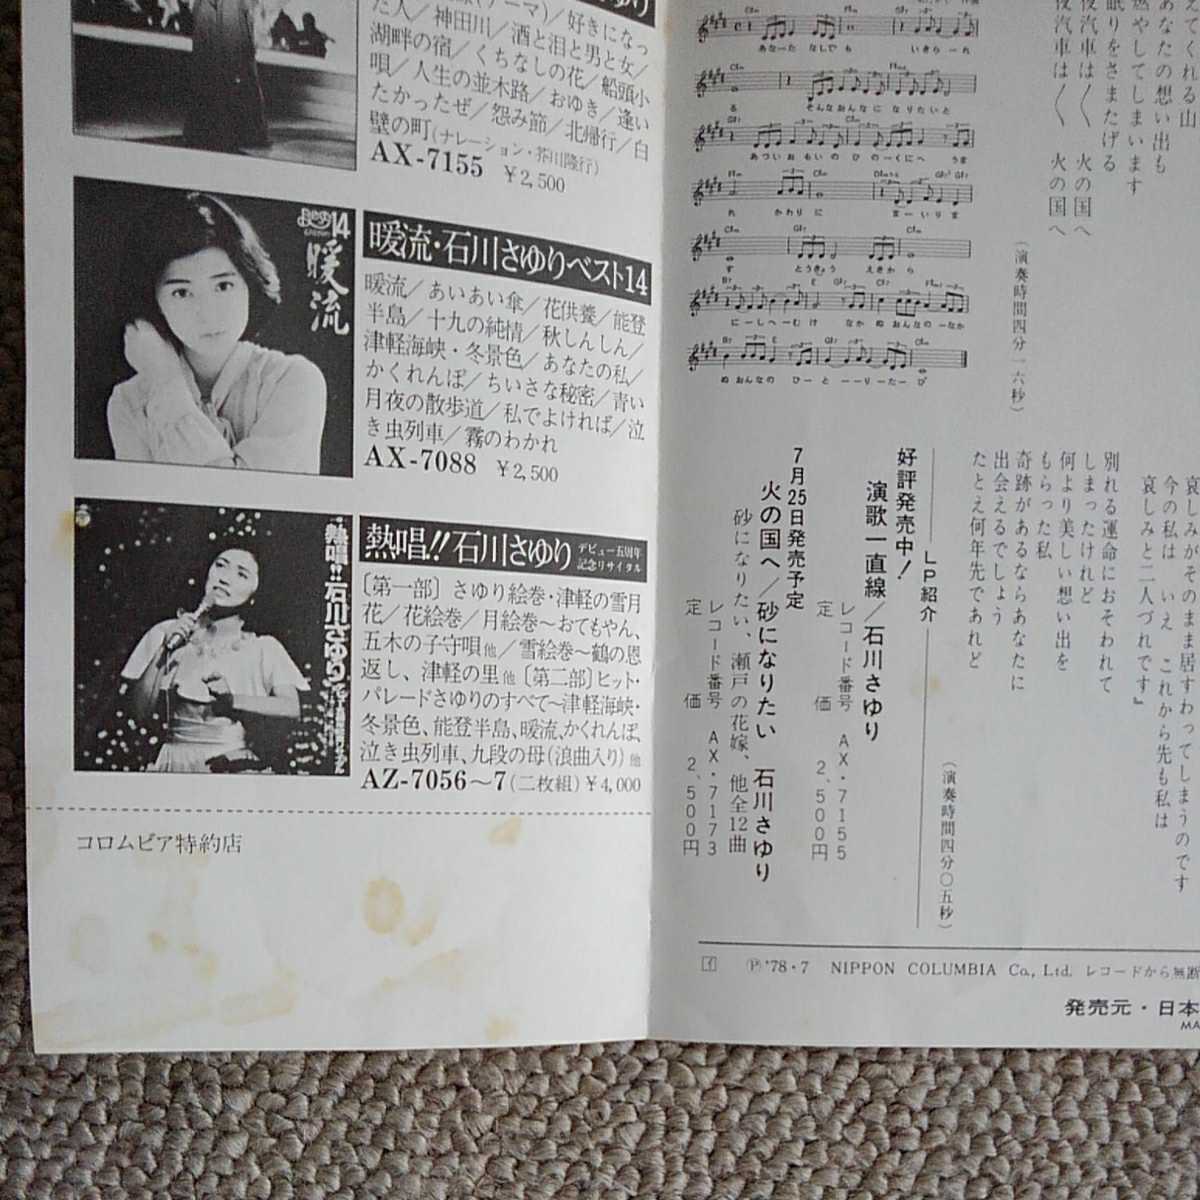 た人／神田川／酒と泪と男と女／
湖畔の宿／くちなしの花／船頭小
唄／人生の並木路／おゆき／逢い
たかったぜ／怨み節／北帰行／白
壁の町(ナレーション・芥川隆行)
AX-7155 ¥2,500
14
暖流
暖流・石川さゆりベスト14
暖流／あいあい傘／花供養／能登
半島／十九の純情／秋しんしん／
津軽海峡・冬景色／あなたの私／
かくれんぼ／ちいさな秘密／青い
月夜の散歩道／私でよければ／泣
き虫列車／霧のわかれ
AX-7088 ¥2,500
熱唱!!石川さゆり
熱唱!!石川さゆり デビュー五周年
記念リサイタル
〔第一部〕さゆり絵巻・津軽の雪月
花／花絵巻／月絵巻〜おてもやん、
五木の子守唄他／雪絵巻〜鶴の恩
返し、津軽の里他〔第二部〕ヒット・
パレードさゆりのすべて〜津軽海峡・
冬景色、能登半島、暖流、かくれんぼ、
泣き虫列車、九段の母(浪曲入り)他
AZ-7056〜7(二枚組)¥4,000
コロムビア特約店
えてくれる山
あなたの想い出も
燃やしてしまいます
眠りをさまたげる
夜汽車は〱 火の国へ
夜汽車は〱 火の国へ
(演奏時間四分一六秒)
あなーた なしでも いきられーれ
る そんなおんなに なりたいと
あついおもいの ひのーくにへ うま
れ かわりに まーいりま
す とうきょう えきから
にーしへーむけ なかぬおんなのーなか
ぬおんなの ひーとーーりーたーび
哀しみがそのまま居すわってしまうのです
今の私は いいえ これから先も私は
哀しみと二人づれです』
別れる運命におそわれて
しまったけれど
何より美しい想い出を
もらった私
奇跡があるならあなたに
出会えるでしょう
たとえ何年先であれど
(演奏時間四分〇五秒)
LP紹介
好評発売中!
演歌一直線／石川さゆり
レコード番号 AX・7155
定価 2,500円
7月25日発売予定
火の国へ／砂になりたい 石川さゆり
砂になりたい、瀬戸の花嫁、他全12曲
レコード番号 AX・7173
定価 2,500円
Ⓟ'78・7 NIPPON COLUMBIA Co., Ltd. レコードから無断
発売元・日本
MA